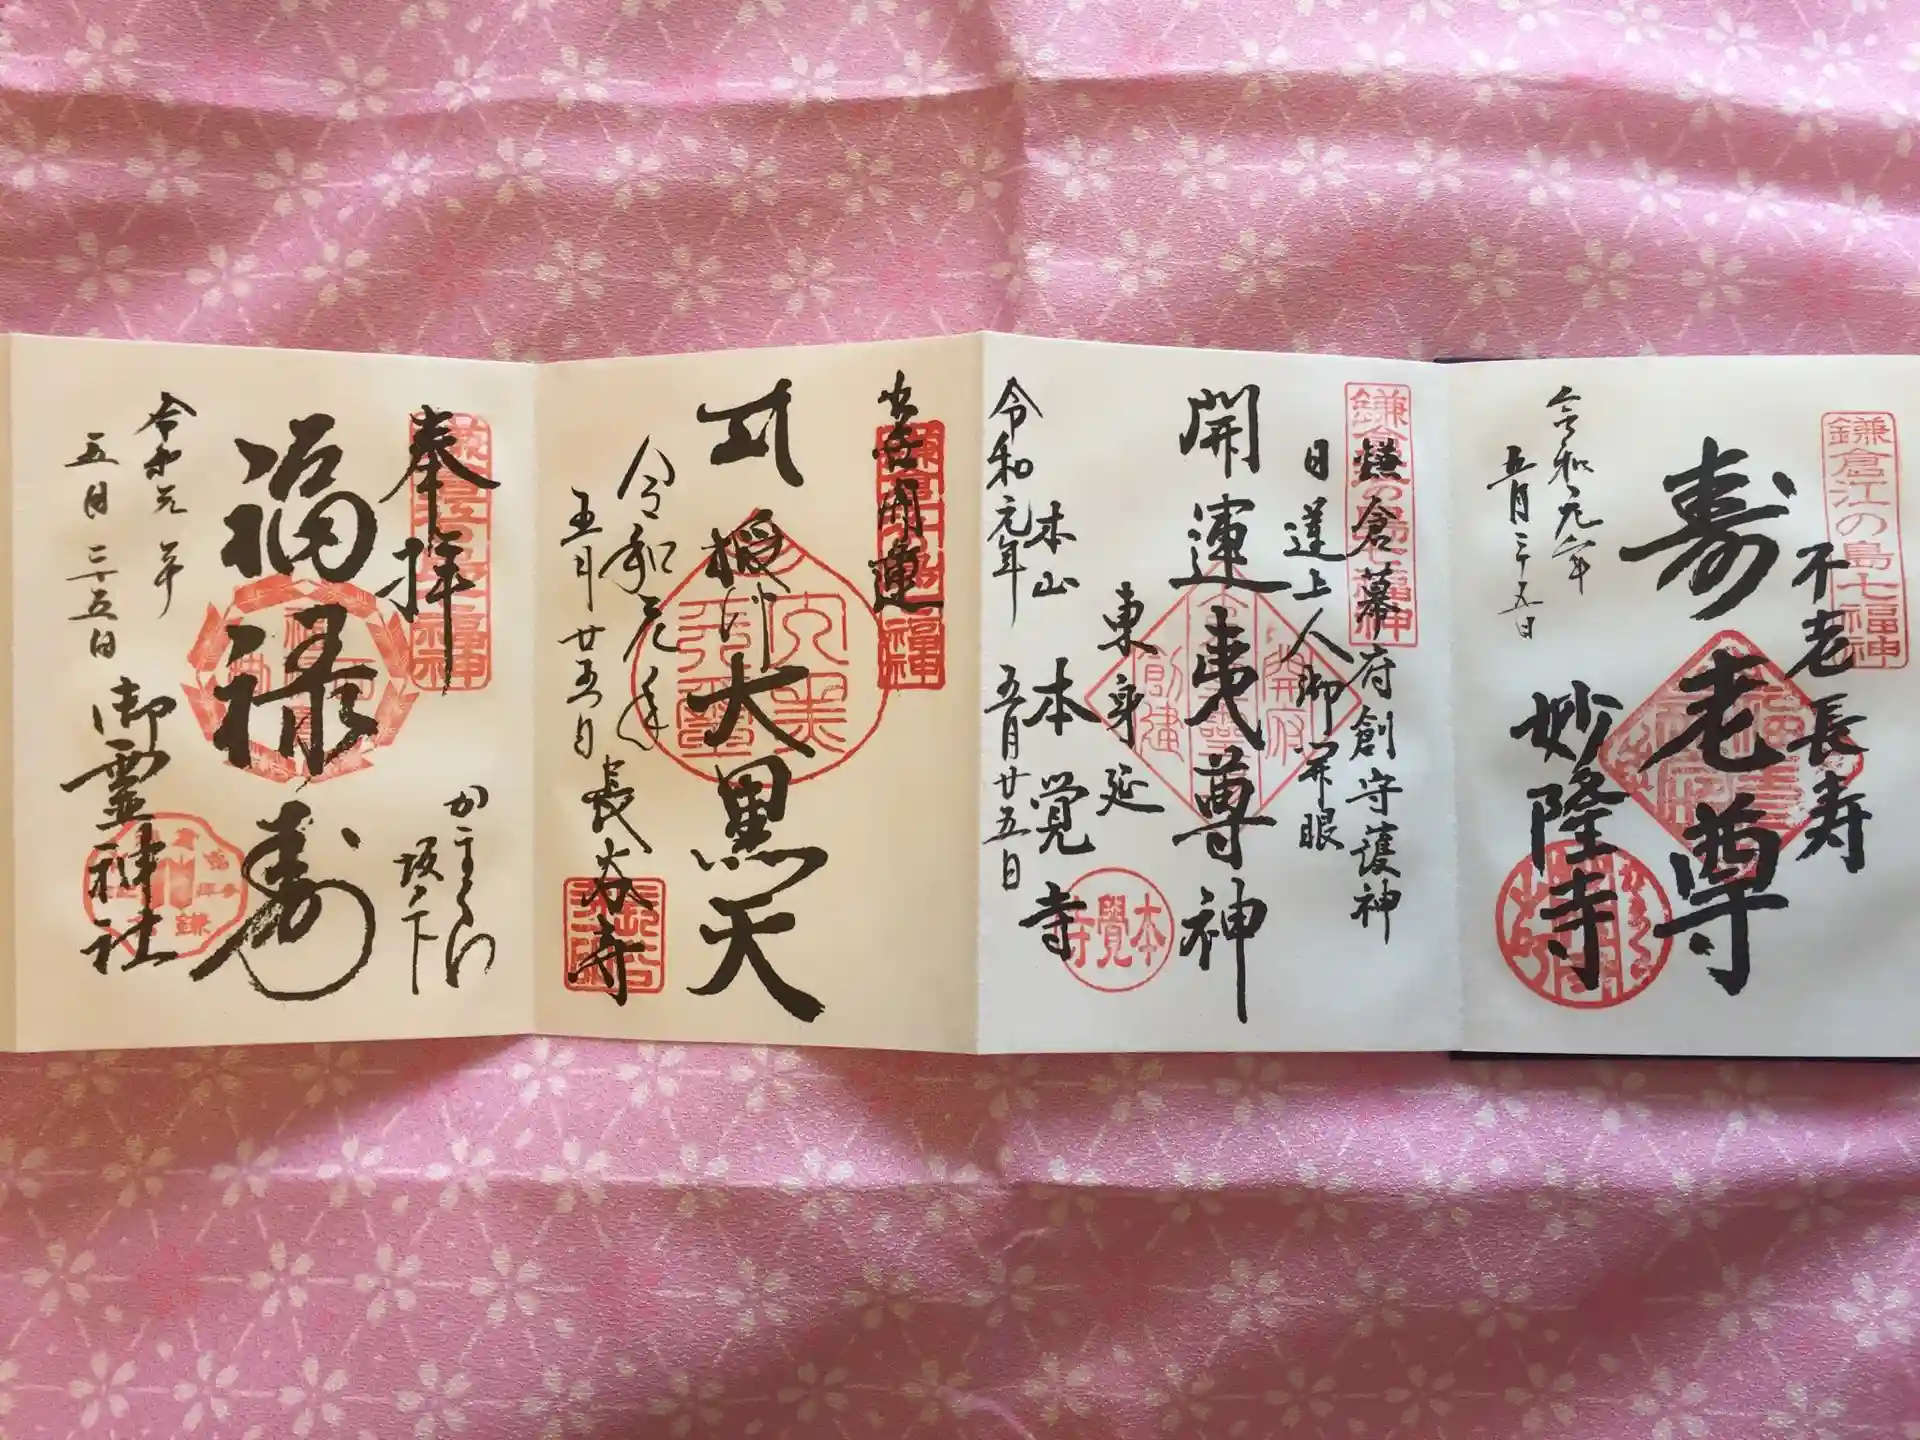 鎌倉江の島七福神
不老長寿
寿老尊
妙隆寺
令和元年
五月二十五日
鎌倉江の島七福神
鎌倉幕府創守護神
日蓮上人御開眼
開運夷尊神
東身延
本山 本覚寺
本覺寺
令和元年 五月廿五日
開運
大黒天
令和元年
五月廿五日
長谷寺
奉拝
かまくら
坂ノ下
福禄寿
令和元年
五月二十五日
御霊神社